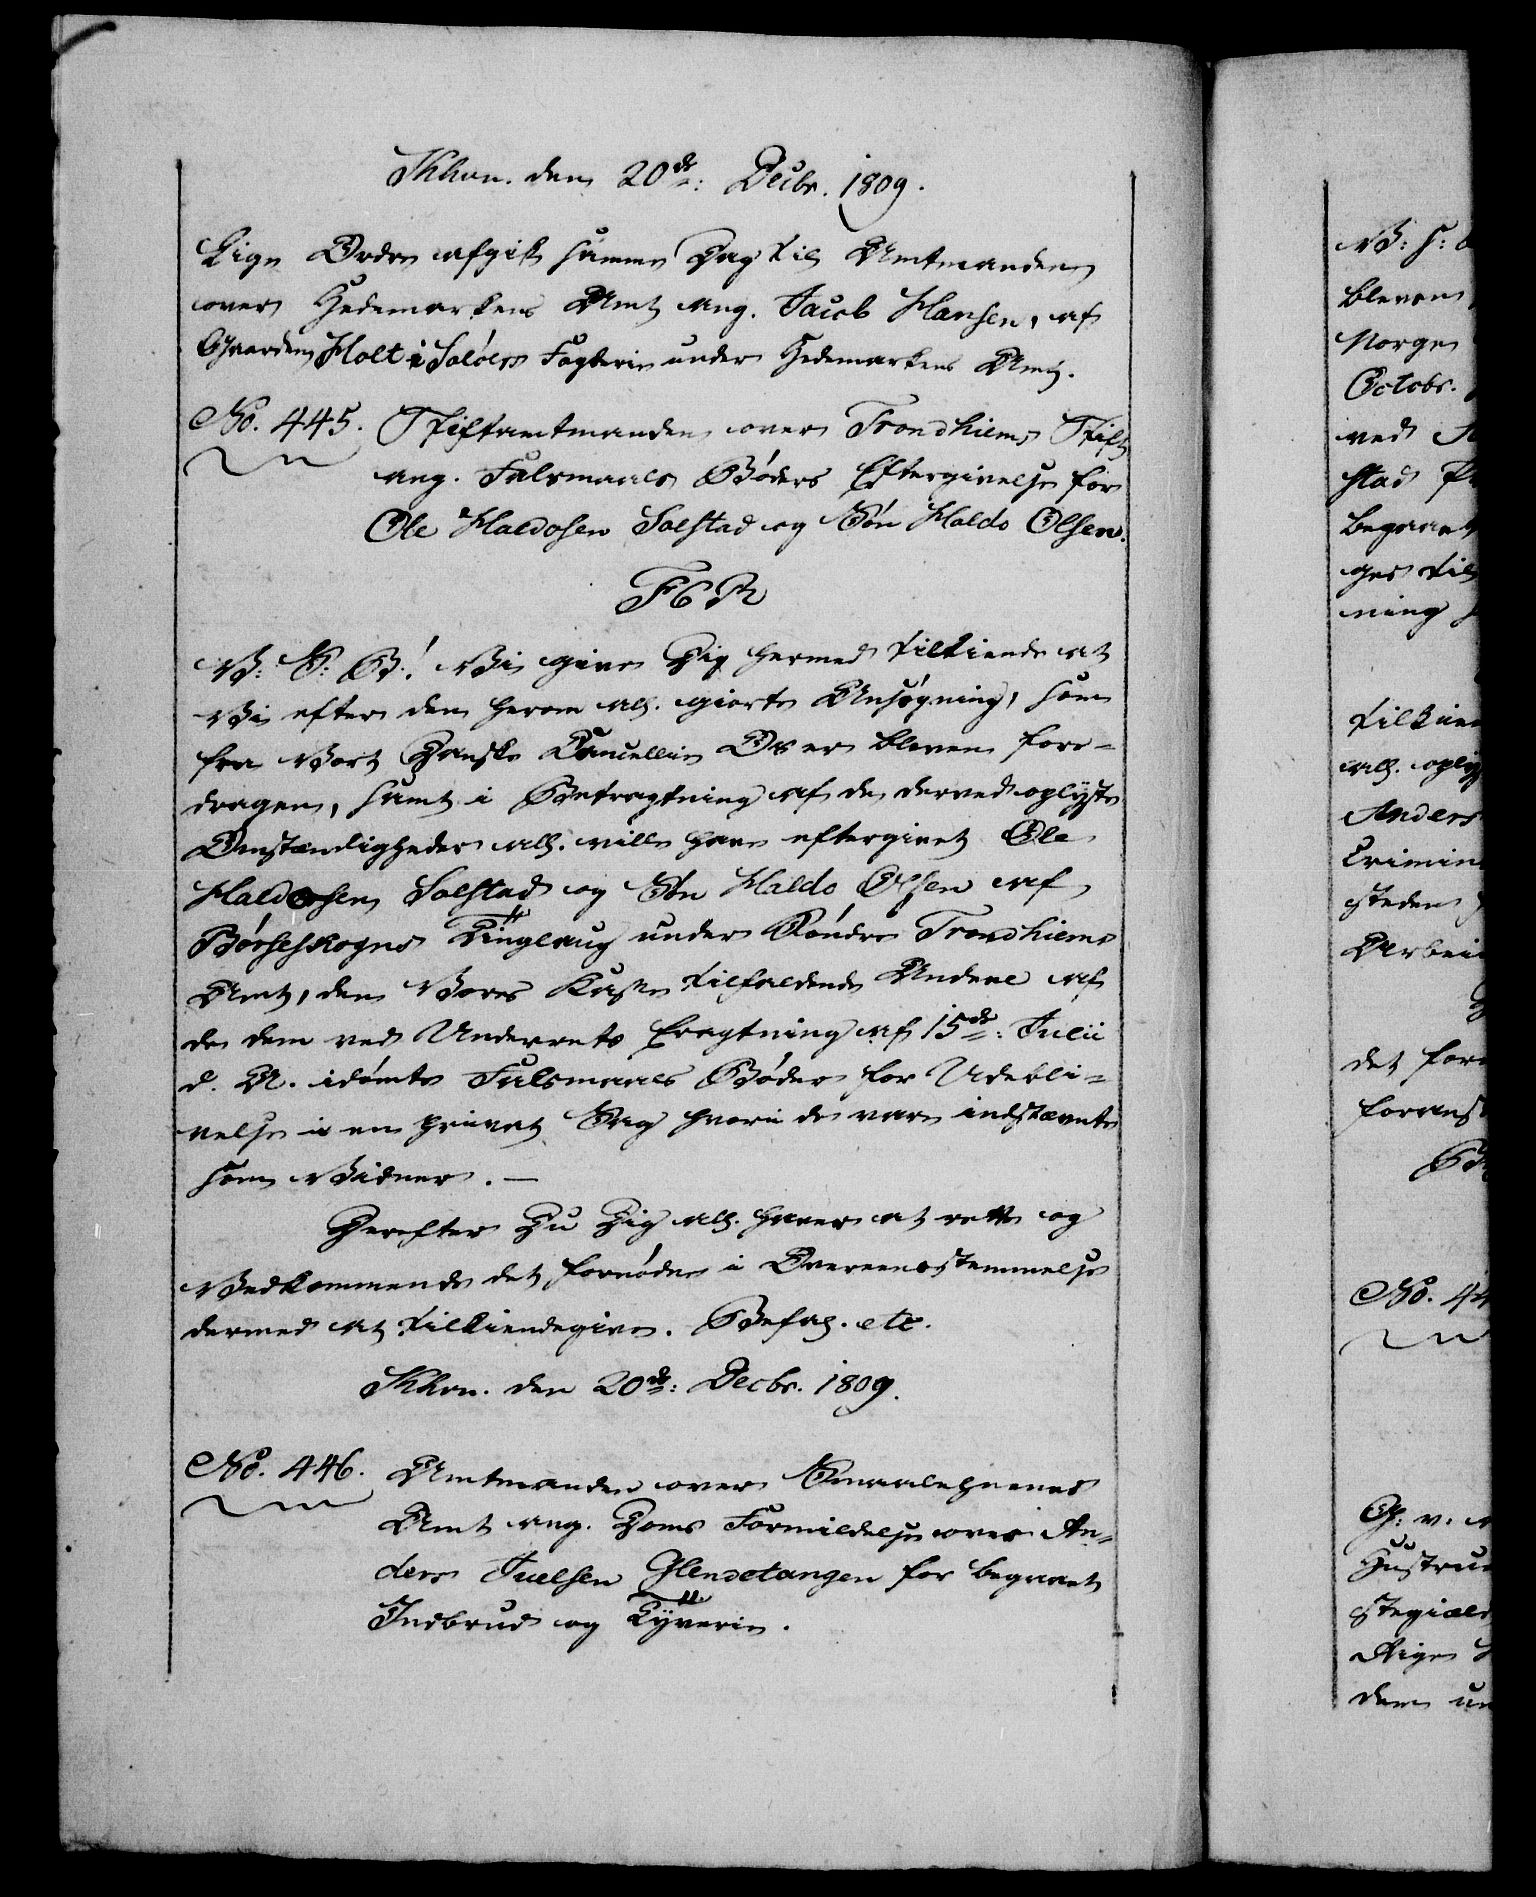 Khvn. den 20de: Decbr. 1809.
Lige Ordre afgik samme Dag til Amtmanden
over Hedemarkens Amt ang. Jacob Hansen, af
Gaarden Holt i Soløers Fogderie under Hedemarkens Amt.
No. 445. Stiftamtmanden over Trondhiems Stift
ang. Falsmaals Bøders Eftergivelse for
Ole Haldosen Solstad og Søn Haldo Olsen.
F6R
V: S: G! Vi give Dig hermed tilkiende at
Vi efter den herom all. giorte Ansøgning, som
fra Vort Danske Cancellie Os er bleven fore-
dragen, samt i Betragtning af de derved oplyste
Omstændigheder all. ville have eftergivet Ole
Haldosen Solstad og Søn Haldo Olsen af
Børseskogns Tinglaug under Søndre Trondhiems
Amt, den Vores Kasse tilfaldende Andeel af
de dem ved Underrets Eragtning af 15de: Julii
d. A. idømte Falsmaals Bøder for Udebli-
velse i en privat Sag hvori de vare indstævnte
som Vidner. -
Derefter Du Dig all. haver at rette og
Vedkommende det fornødne i Overeensstemmelse
dermed at tilkiendegive. Befal. etc.
Khvn. den 20de: Decbr. 1809.
No. 446. Amtmanden over Smaalehnenes
Amt ang. Doms Formildelse over An-
ders Juelsen Glendetangen for begaaet
Indbrud og Tyverie.
bleven
Norge
Octobr.
ved
stad
begaaet
ges til
ning
all. oply
Anders
Crimin
steden
Arbei
det for
foranst
No. 44
Hustrue
dem un